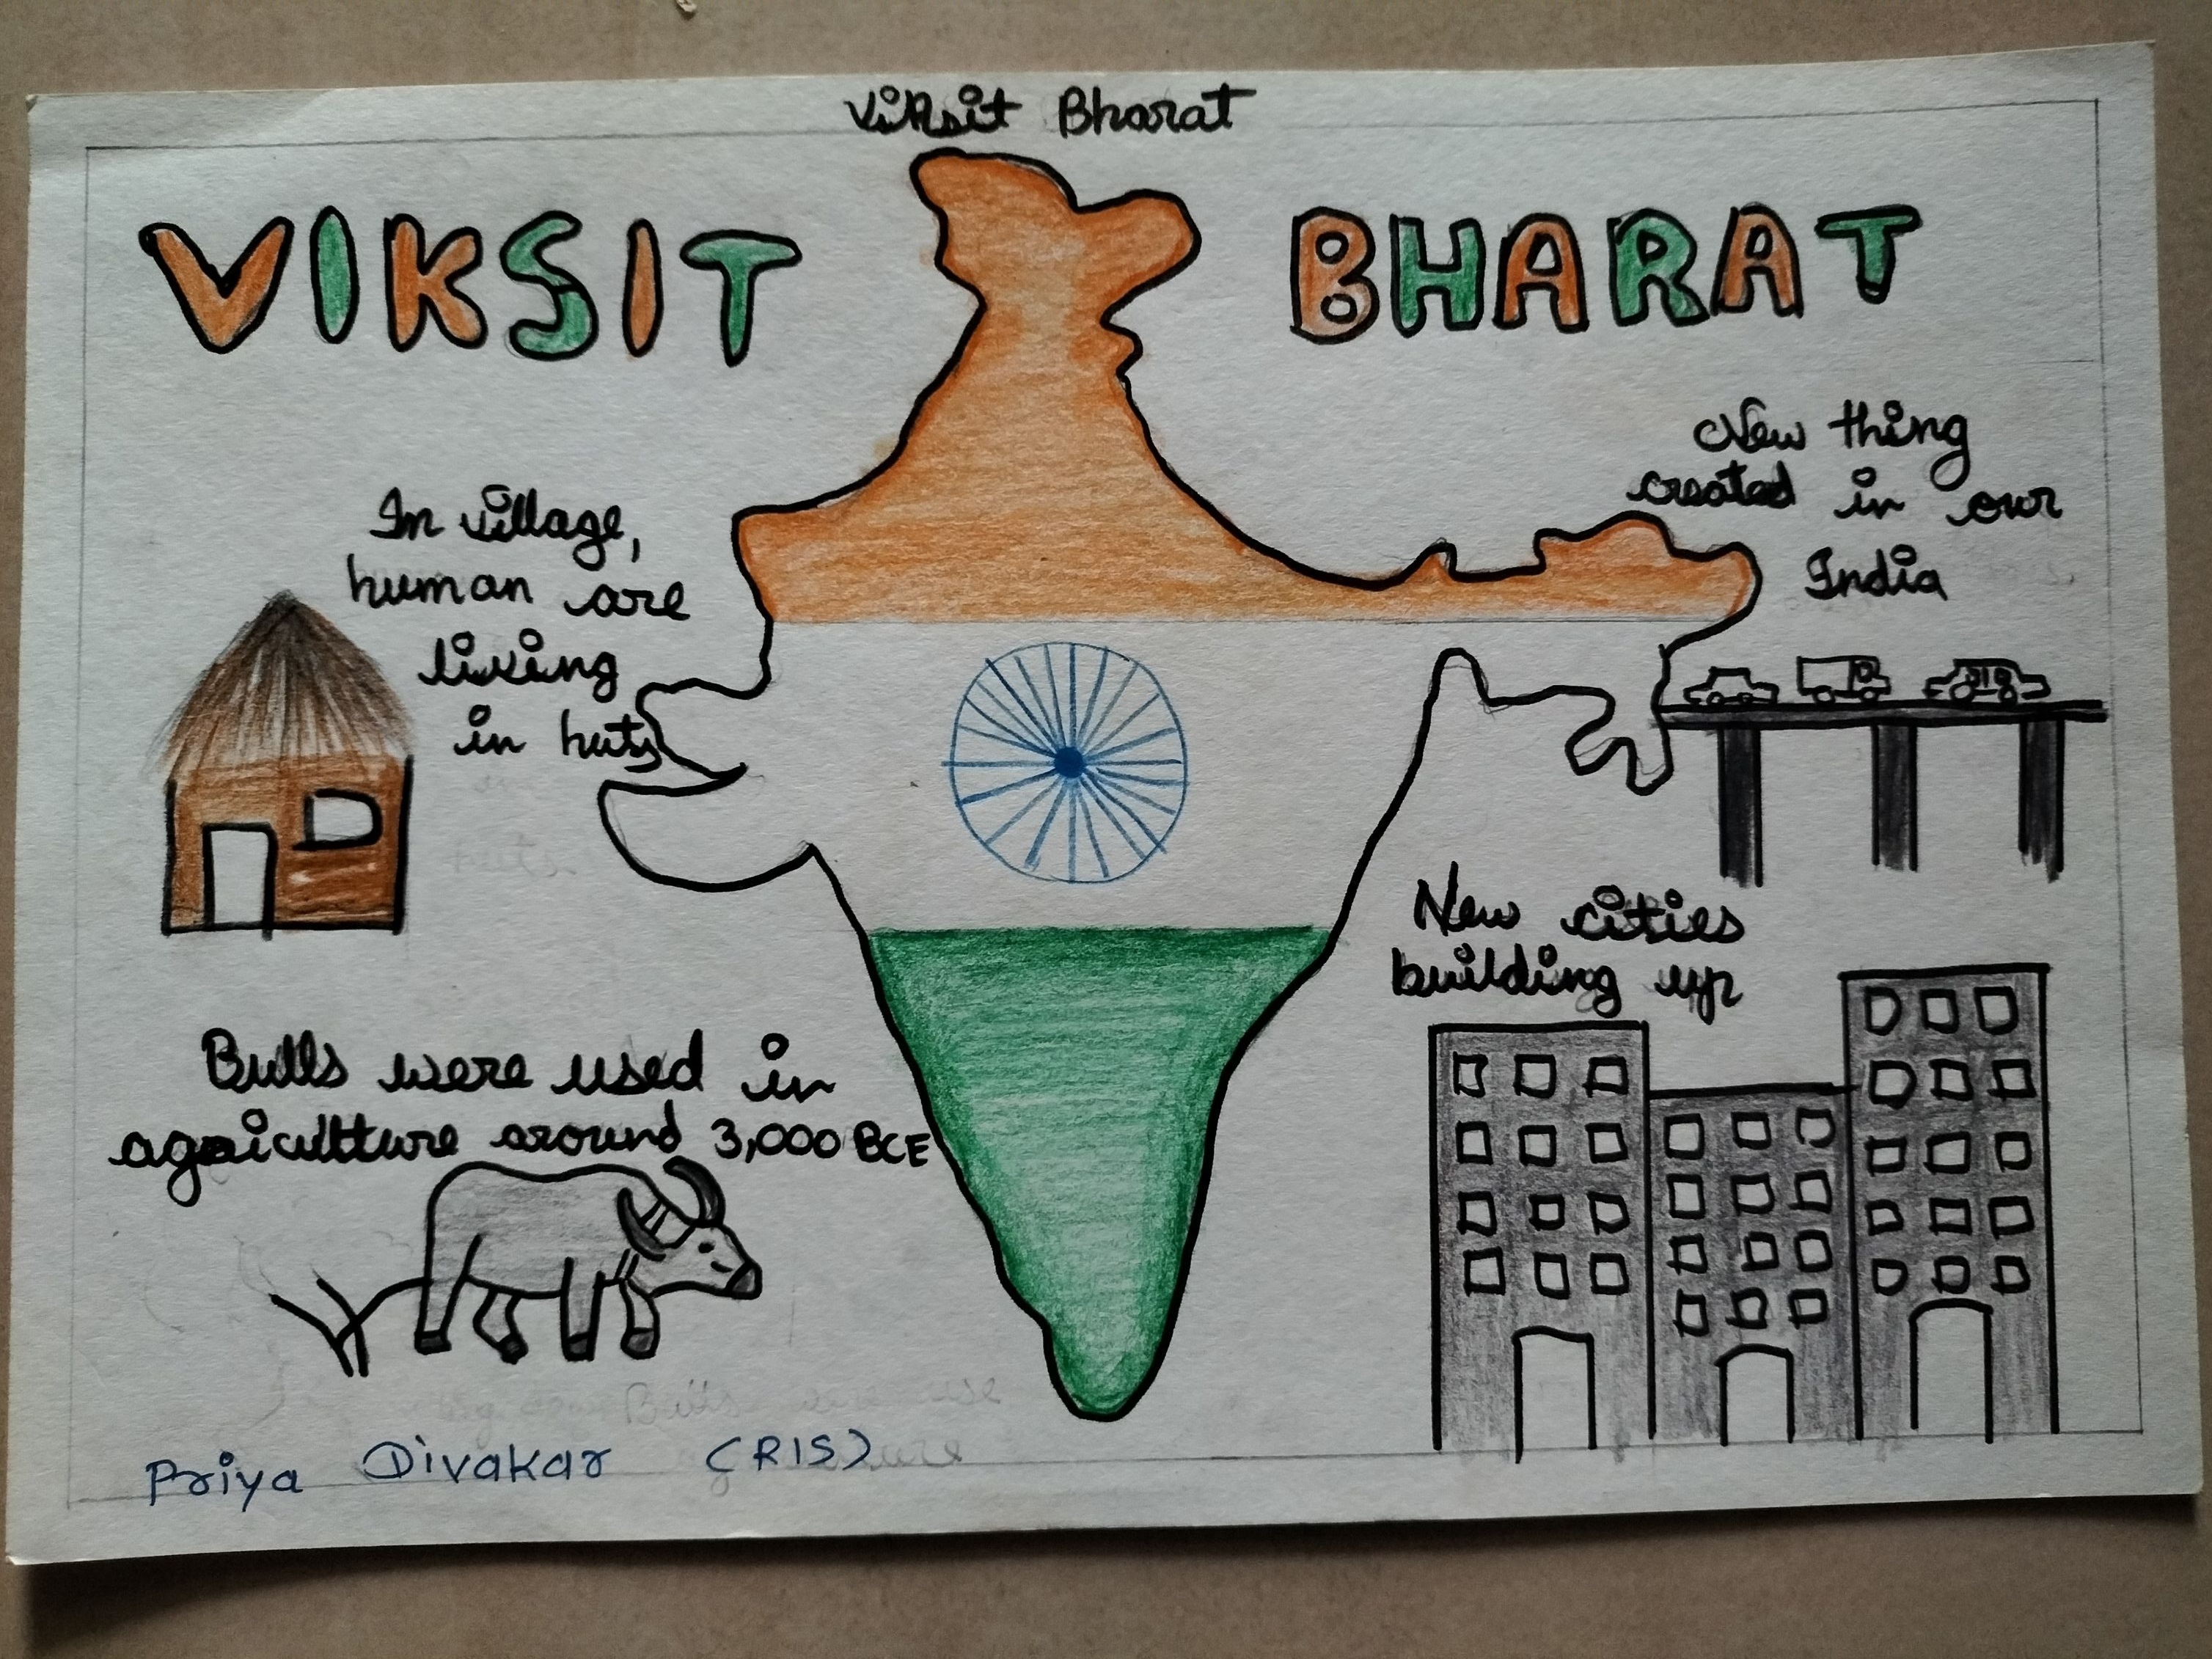 Viksit Bharat
VIKSIT BHARAT
New thing
created in our
India
In village,
human are
living
in huts
New cities
building up
Bulls were used in
agriculture around 3,000 BCE
Priya Divakar (RIS)